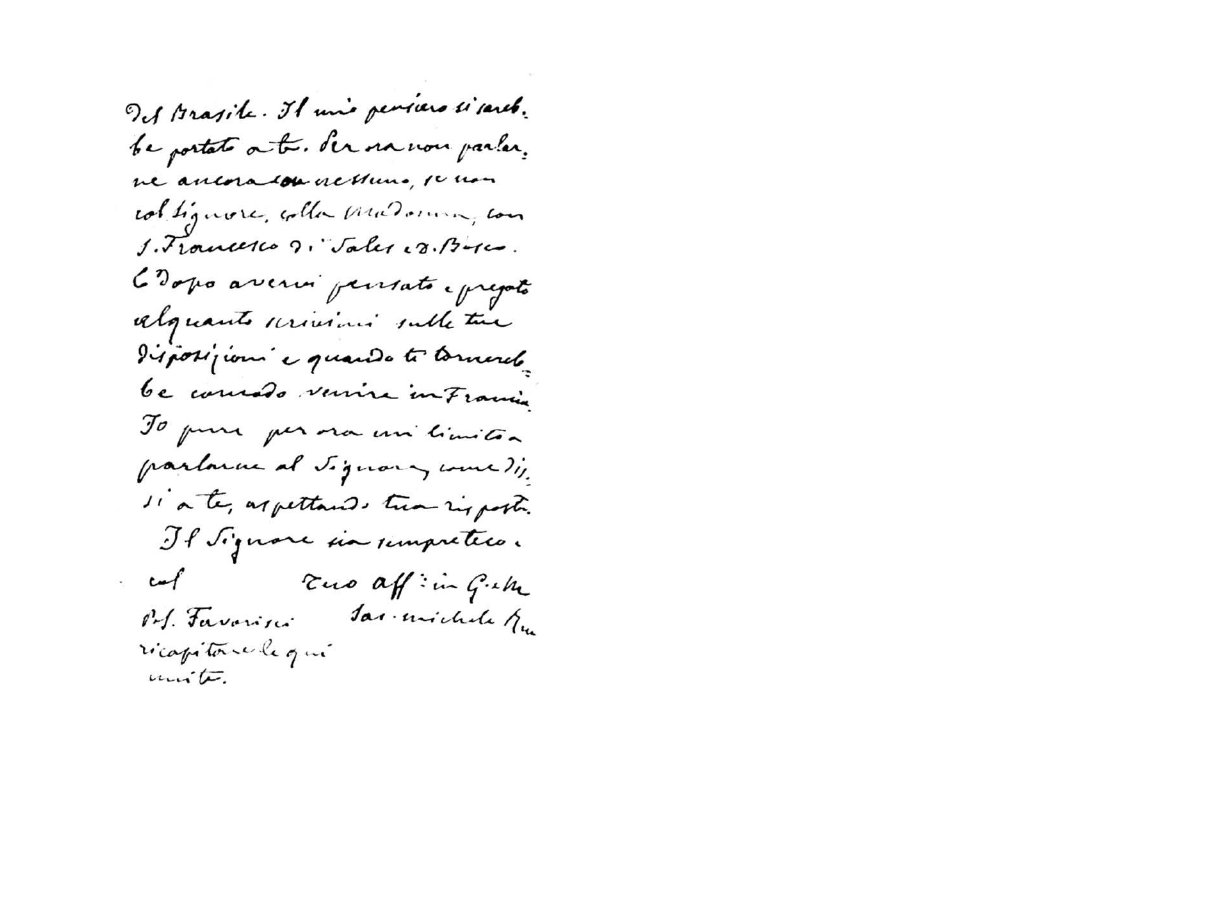 del Brasile. Il mio pensiero si sareb=
be portato a te. Per ora non parlar=
ne ancora con nessuno, se non
col Signore, colla Madonna, con
S. Francesco di Sales e D. Bosco.
E dopo avervi pensato e pregato
alquanto scrivimi sulle tue
disposizioni e quando ti tornereb=
be comodo venire in Francia.
Io pure per ora mi limito a
parlarne al Signore, come dis=
si a te, aspettando tua risposta.
Il Signore sia sempre teco e
col Tuo aff.mo in G. e M.
Sac. Michele Rua
P.S. Favorisci
ricapitare le qui
unite.